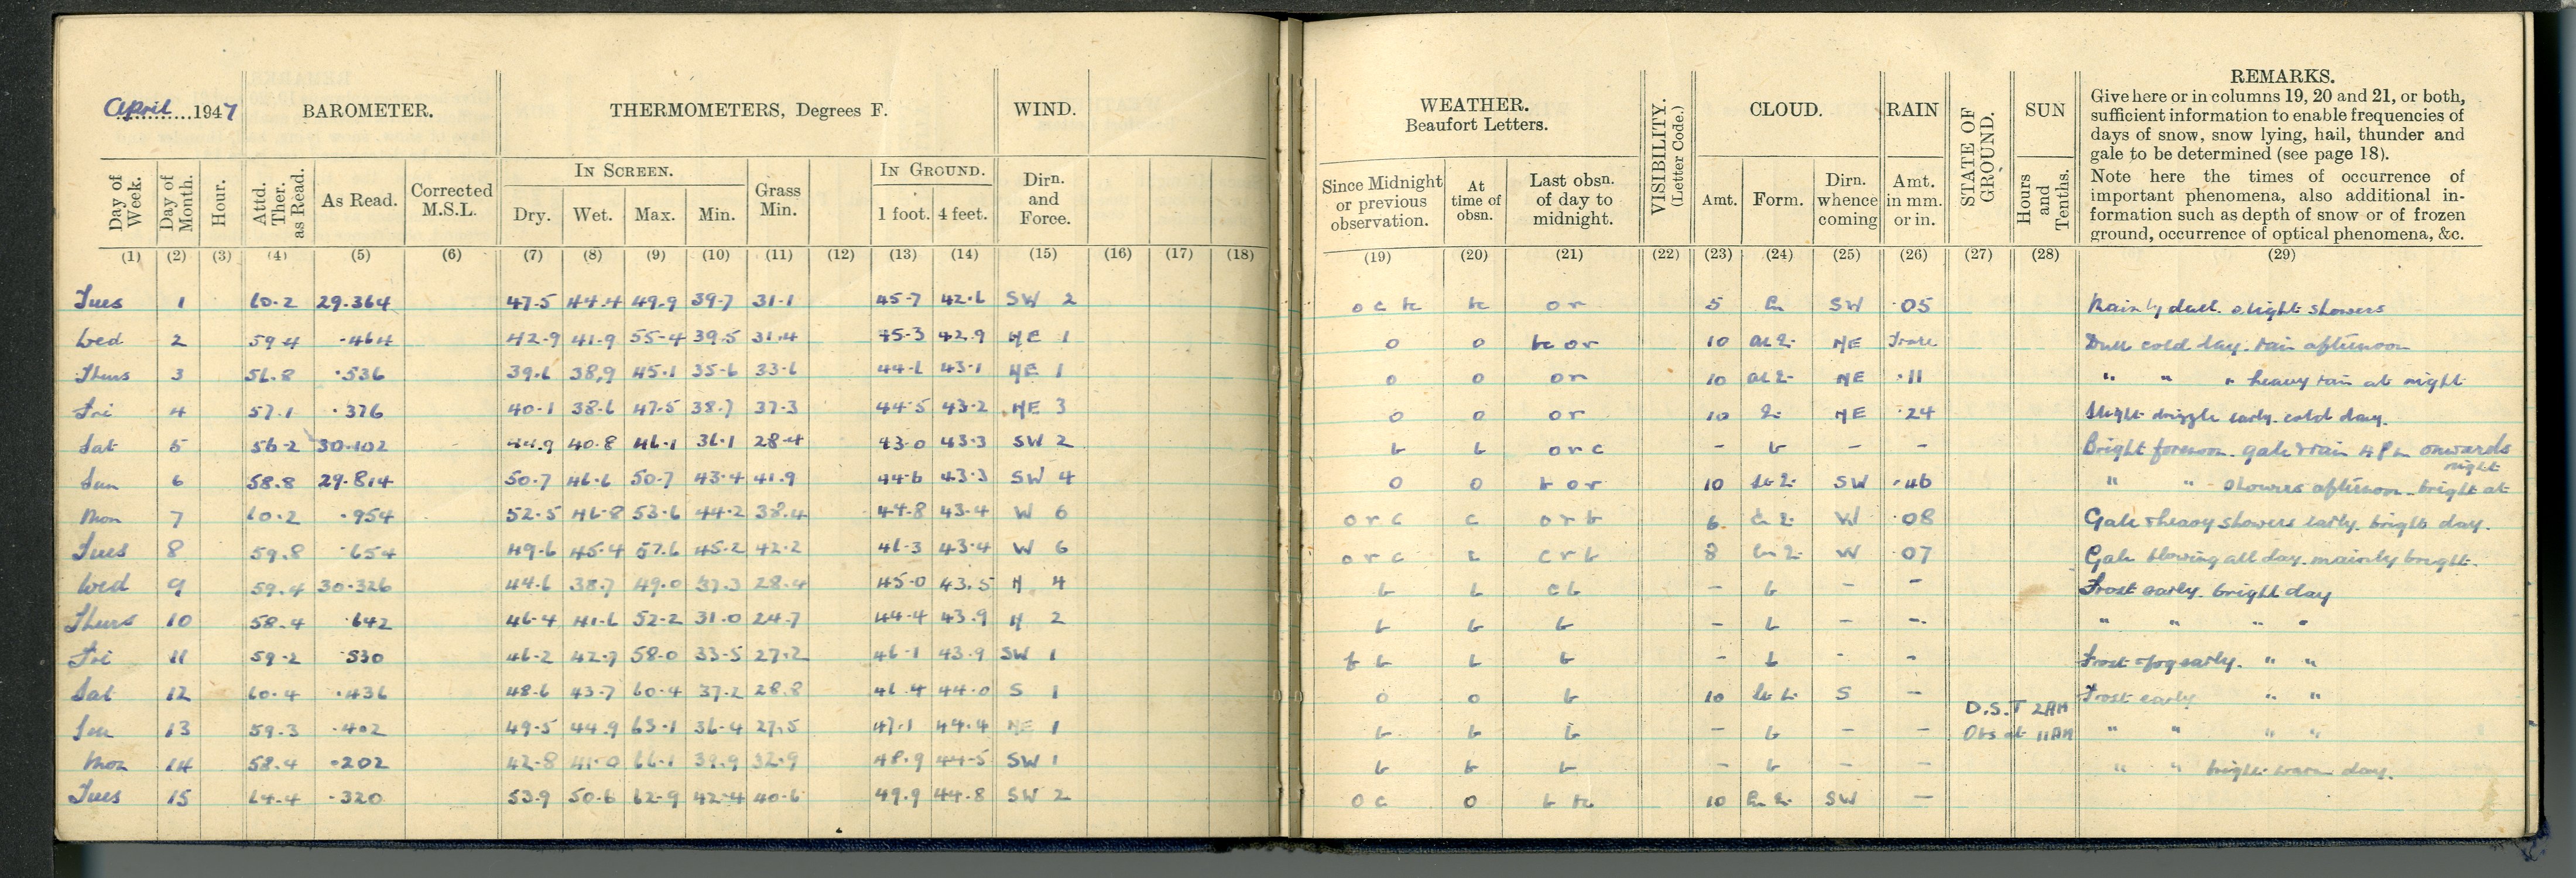 April 1947 BAROMETER. THERMOMETERS, Degrees F. WIND.
IN SCREEN. IN GROUND.
Day of Week. Day of Month. Hour. Attd. Ther. as Read. As Read. Corrected M.S.L. Dry. Wet. Max. Min. Grass Min. 1 foot. 4 feet. Dirn. and Force.
(1) (2) (3) (4) (5) (6) (7) (8) (9) (10) (11) (12) (13) (14) (15) (16) (17) (18)
Tues 1 60.2 29.364 47.5 44.4 49.9 39.7 31.1 45.7 42.6 SW 2
Wed 2 59.4 .464 42.9 41.9 55.4 39.5 31.4 45.3 42.9 NE 1
Thurs 3 56.8 .536 39.6 38.9 45.1 35.6 33.6 44.6 43.1 NE 1
Fri 4 57.1 .376 40.1 38.6 47.5 38.7 37.3 44.5 43.2 NE 3
Sat 5 56.2 30.102 44.9 40.8 46.1 36.1 28.4 43.0 43.3 SW 2
Sun 6 58.8 29.814 50.7 46.6 50.7 43.4 41.9 44.6 43.3 SW 4
Mon 7 60.2 .954 52.5 46.8 53.6 44.2 38.4 44.8 43.4 W 6
Tues 8 59.8 .654 49.6 45.4 57.6 45.2 42.2 46.3 43.4 W 6
Wed 9 59.4 30.326 44.6 38.7 49.0 37.3 28.4 45.0 43.5 N 4
Thurs 10 58.4 .642 46.4 41.6 52.2 31.0 24.7 44.4 43.9 N 2
Fri 11 59.2 .530 46.2 42.7 58.0 33.5 27.2 46.1 43.9 SW 1
Sat 12 60.4 .436 48.6 43.7 60.4 37.2 28.8 46.4 44.0 S 1
Sun 13 59.3 .402 49.5 44.9 63.1 36.4 27.5 47.1 44.4 NE 1
Mon 14 58.4 .202 42.8 41.0 66.1 39.9 32.9 48.9 44.5 SW 1
Tues 15 64.4 .320 53.9 50.6 62.9 42.4 40.6 49.9 44.8 SW 2
WEATHER. Beaufort Letters. VISIBILITY. (Letter Code.) CLOUD. RAIN STATE OF GROUND. SUN REMARKS.
Give here or in columns 19, 20 and 21, or both,
sufficient information to enable frequencies of
days of snow, snow lying, hail, thunder and
gale to be determined (see page 18).
Note here the times of occurrence of
important phenomena, also additional in-
formation such as depth of snow or of frozen
ground, occurrence of optical phenomena, &c.
Since Midnight or previous observation. At time of obsn. Last obsn. of day to midnight. Amt. Form. Dirn. whence coming Amt. in mm. or in. Hours and Tenths.
(19) (20) (21) (22) (23) (24) (25) (26) (27) (28) (29)
o c bc bc o r 5 SW .05 Mainly dull. slight showers
o o bc o r 10 NE Trace Dull cold day. rain afternoon
o o o r 10 NE .11 " " " heavy rain at night
o o o r 10 NE .24 Slight drizzle early. cold day.
b b o r c – b – – Bright forenoon. gale & rain 4 PM onwards
o o b o r 10 SW .46 " " showers afternoon. bright at night
o r c c o r b 6 W .08 Gale & heavy showers early. bright day.
o r c c c r b 8 W .07 Gale blowing all day. mainly bright.
b b c b – b – – Frost early. bright day
b b b – b – – " " " "
f b b b – b – – Frost & fog early. " "
o o b 10 S – Frost early " "
D.S.T 2AM
b b b – b – – Obs at 11AM " " " "
b b b – b – – " " bright warm day.
o c o b bc 10 SW –